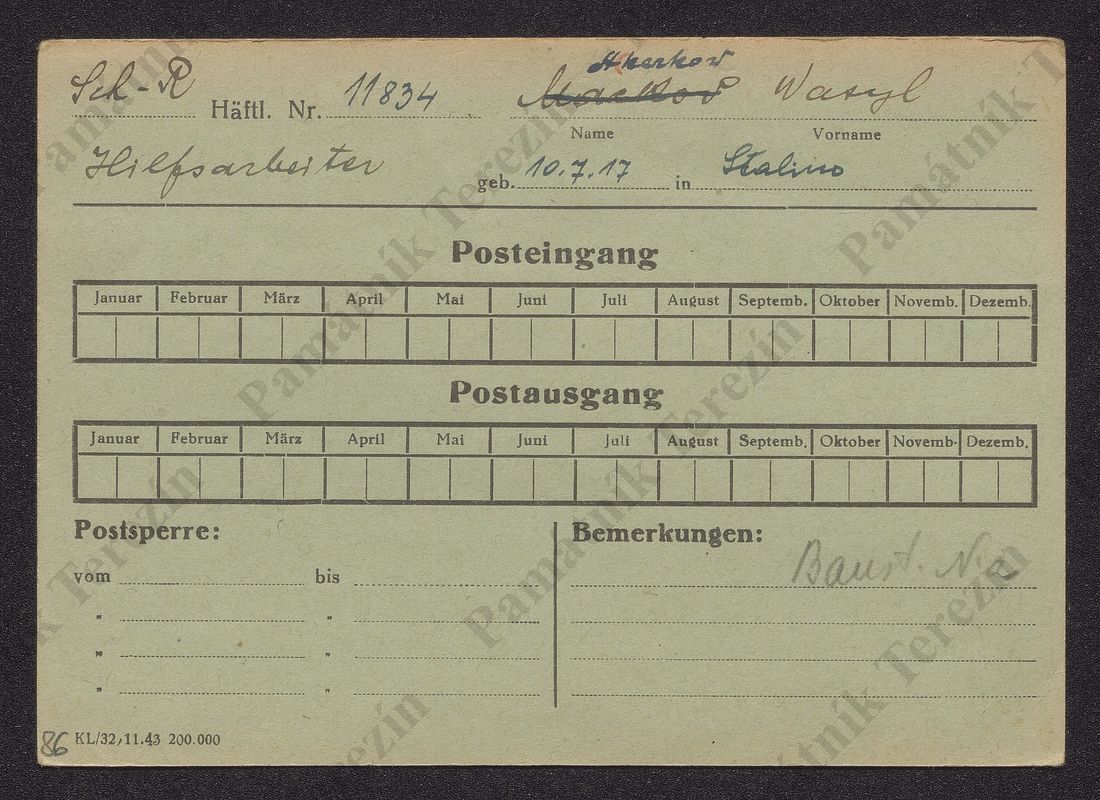 Sch-R Häftl. Nr. 11834 Wasyl
Name Vorname
Hilfsarbeiter geb. 10.7.17 in Stalino
Posteingang
Januar Februar März April Mai Juni Juli August Septemb. Oktober Novemb. Dezemb.
Postausgang
Januar Februar März April Mai Juni Juli August Septemb. Oktober Novemb. Dezemb.
Postsperre: Bemerkungen:
Baust.
vom bis
" "
" "
" "
86 KL/32, 11.43 200.000
Památník Terezín